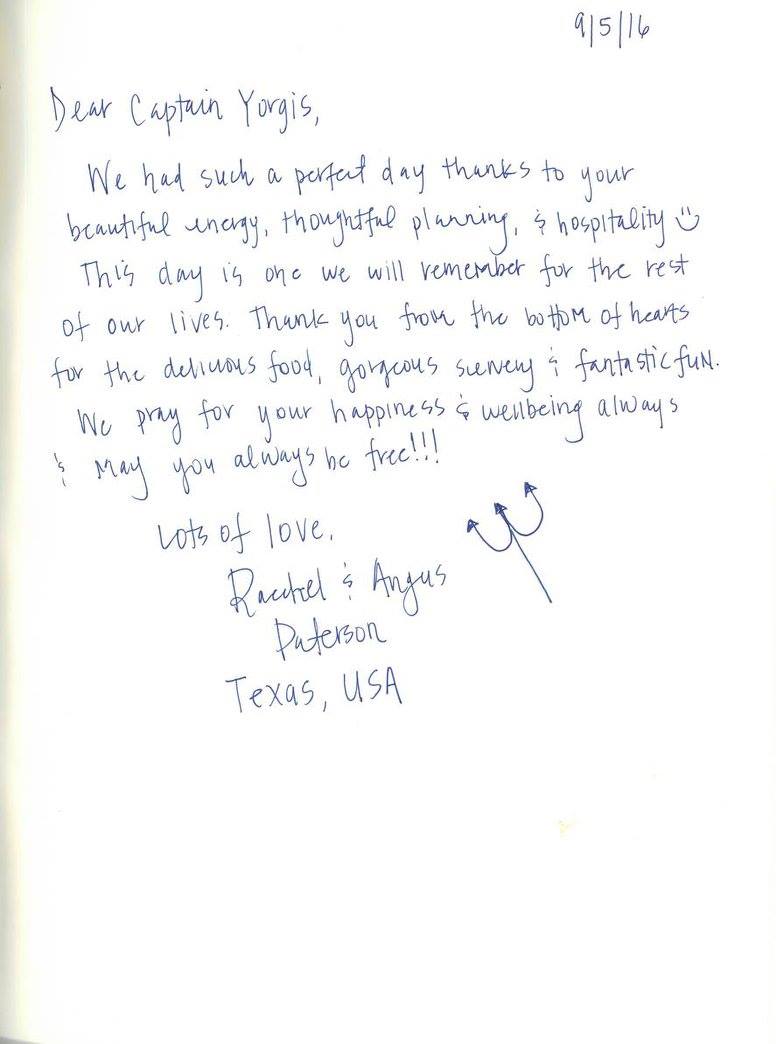 9/5/16
Dear Captain Yorgis,
We had such a perfect day thanks to your
beautiful energy, thoughtful planning, & hospitality
This day is one we will remember for the rest
of our lives. Thank you from the bottom of hearts
for the delicious food, gorgeous scenery & fantastic fun.
We pray for your happiness & wellbeing always
& may you always be free!!!
Lots of love,
Rachel & Angus
Paterson
Texas, USA